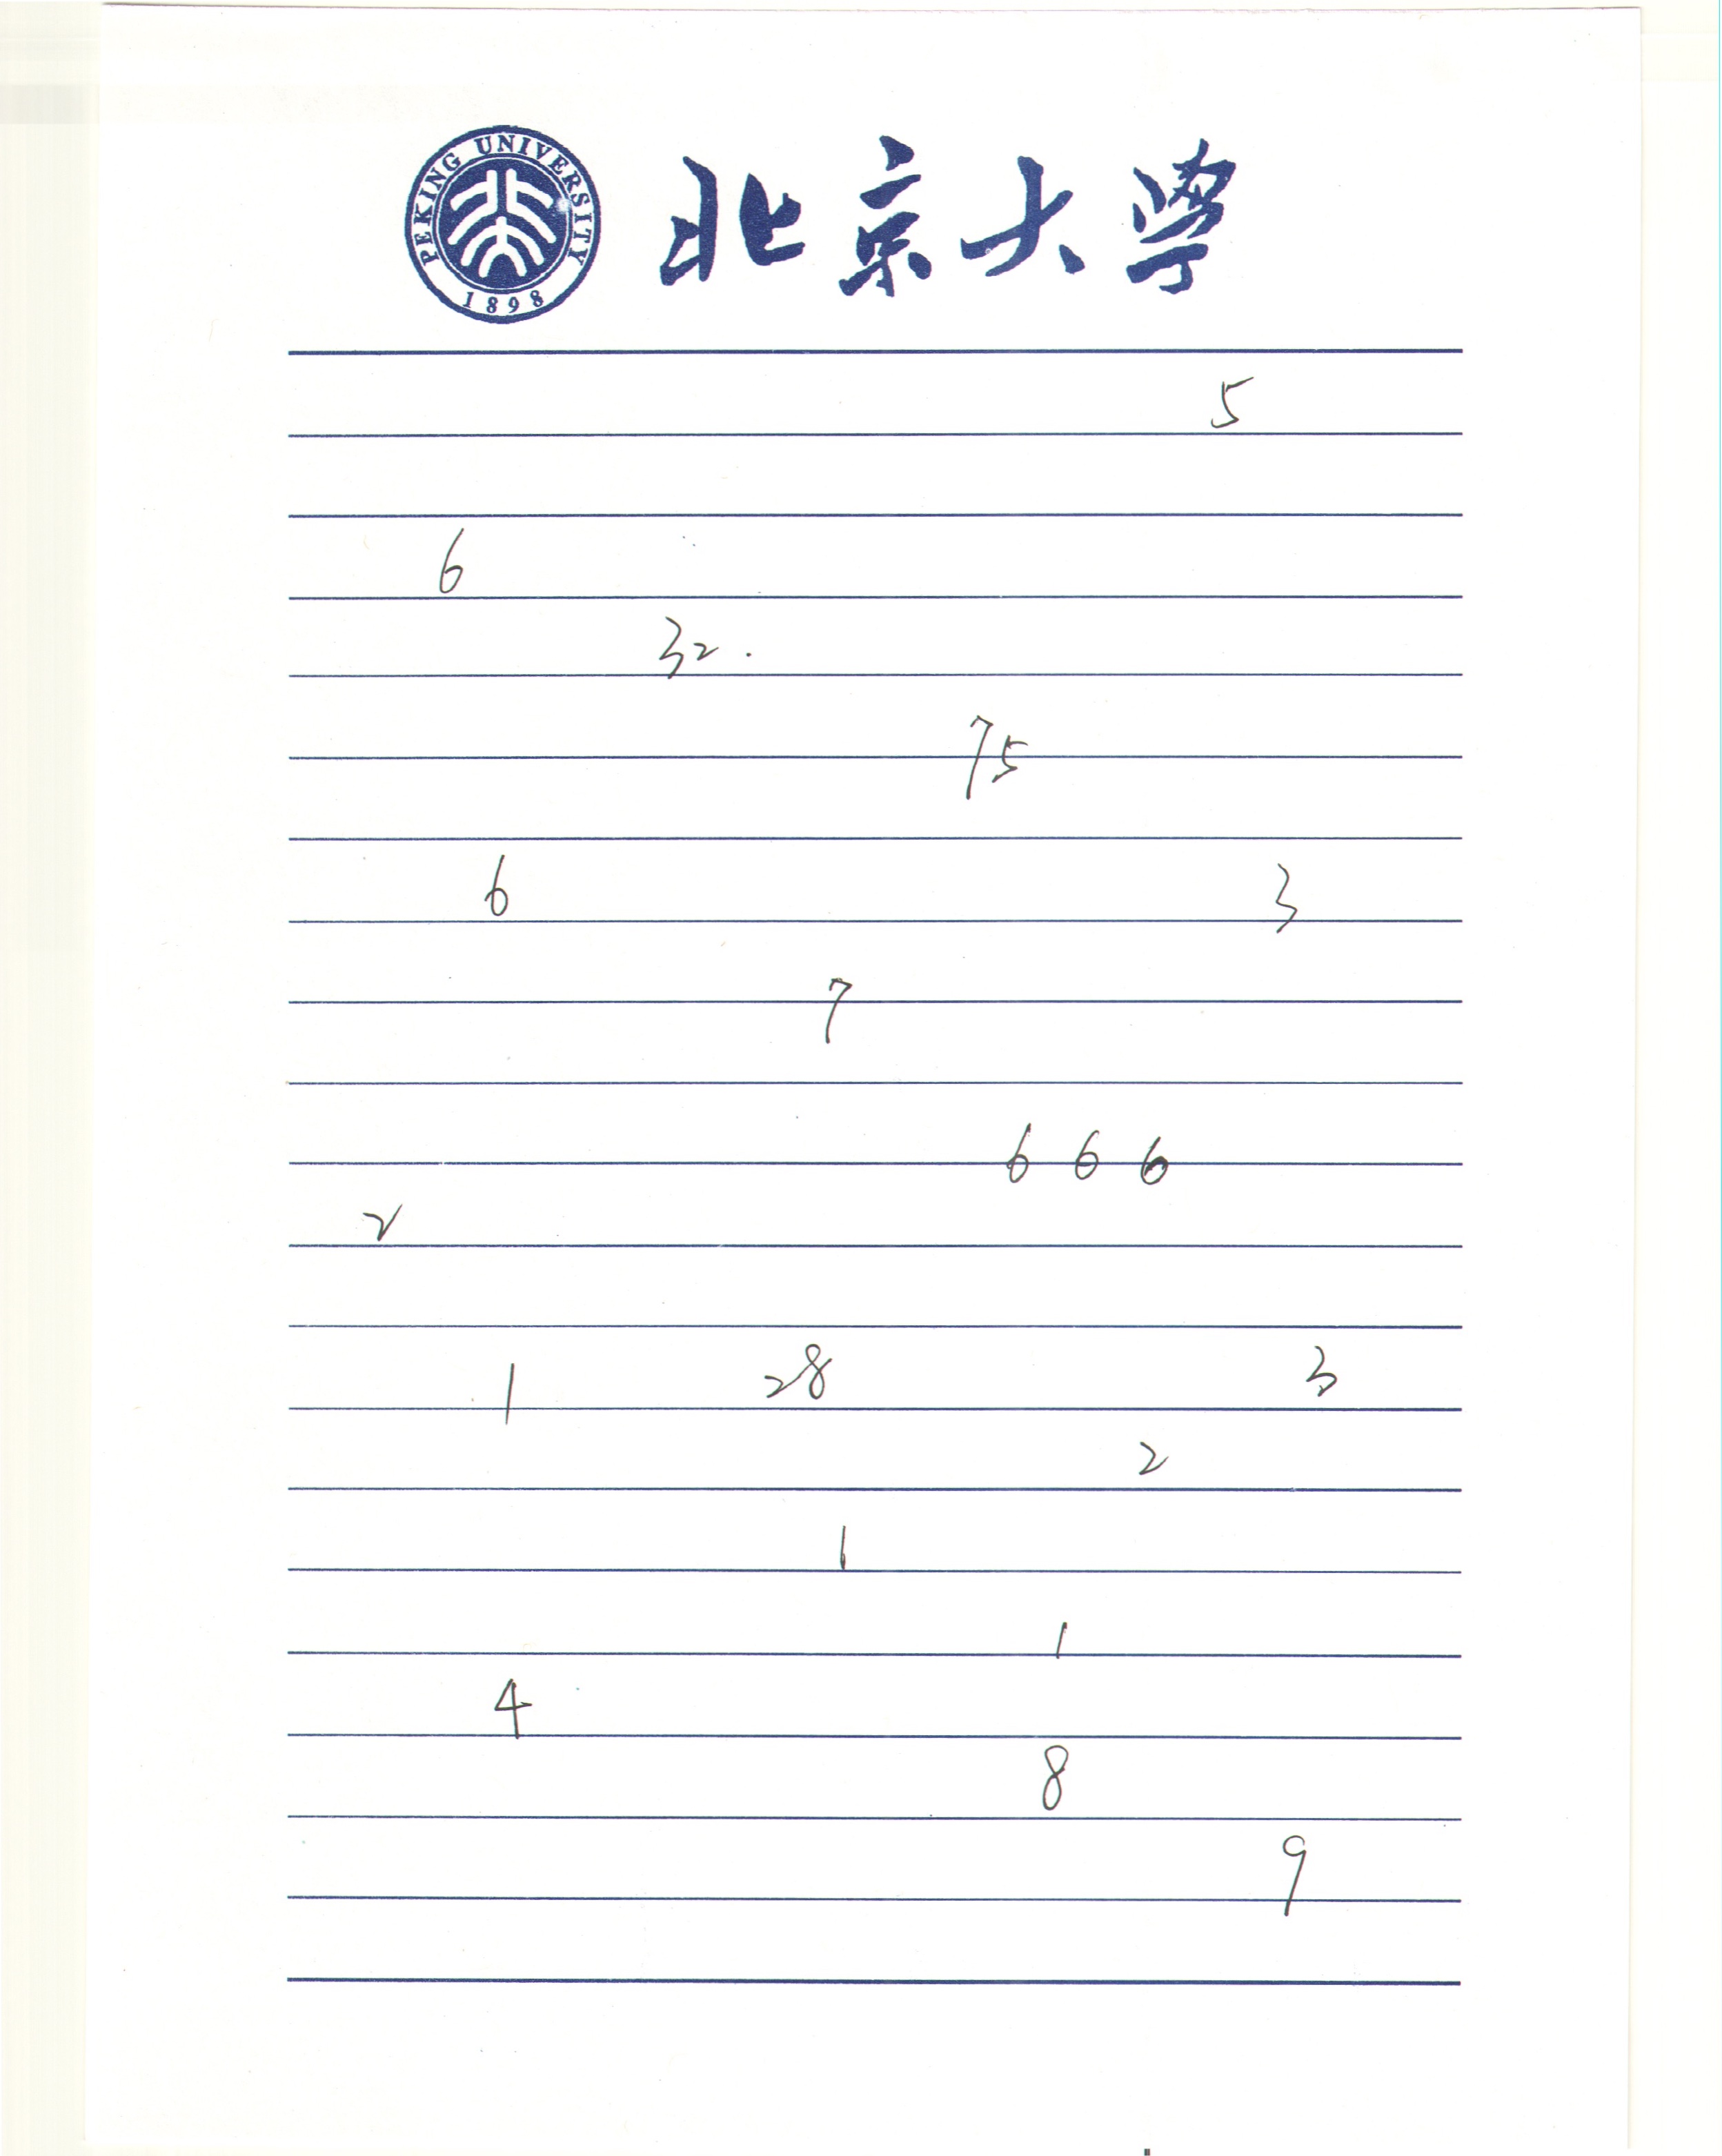 PEKING UNIVERSITY
1898
北京大學
5
6
32.
75
6 3
7
6 6 6
2
1 28 3
2
1
1
4
8
9